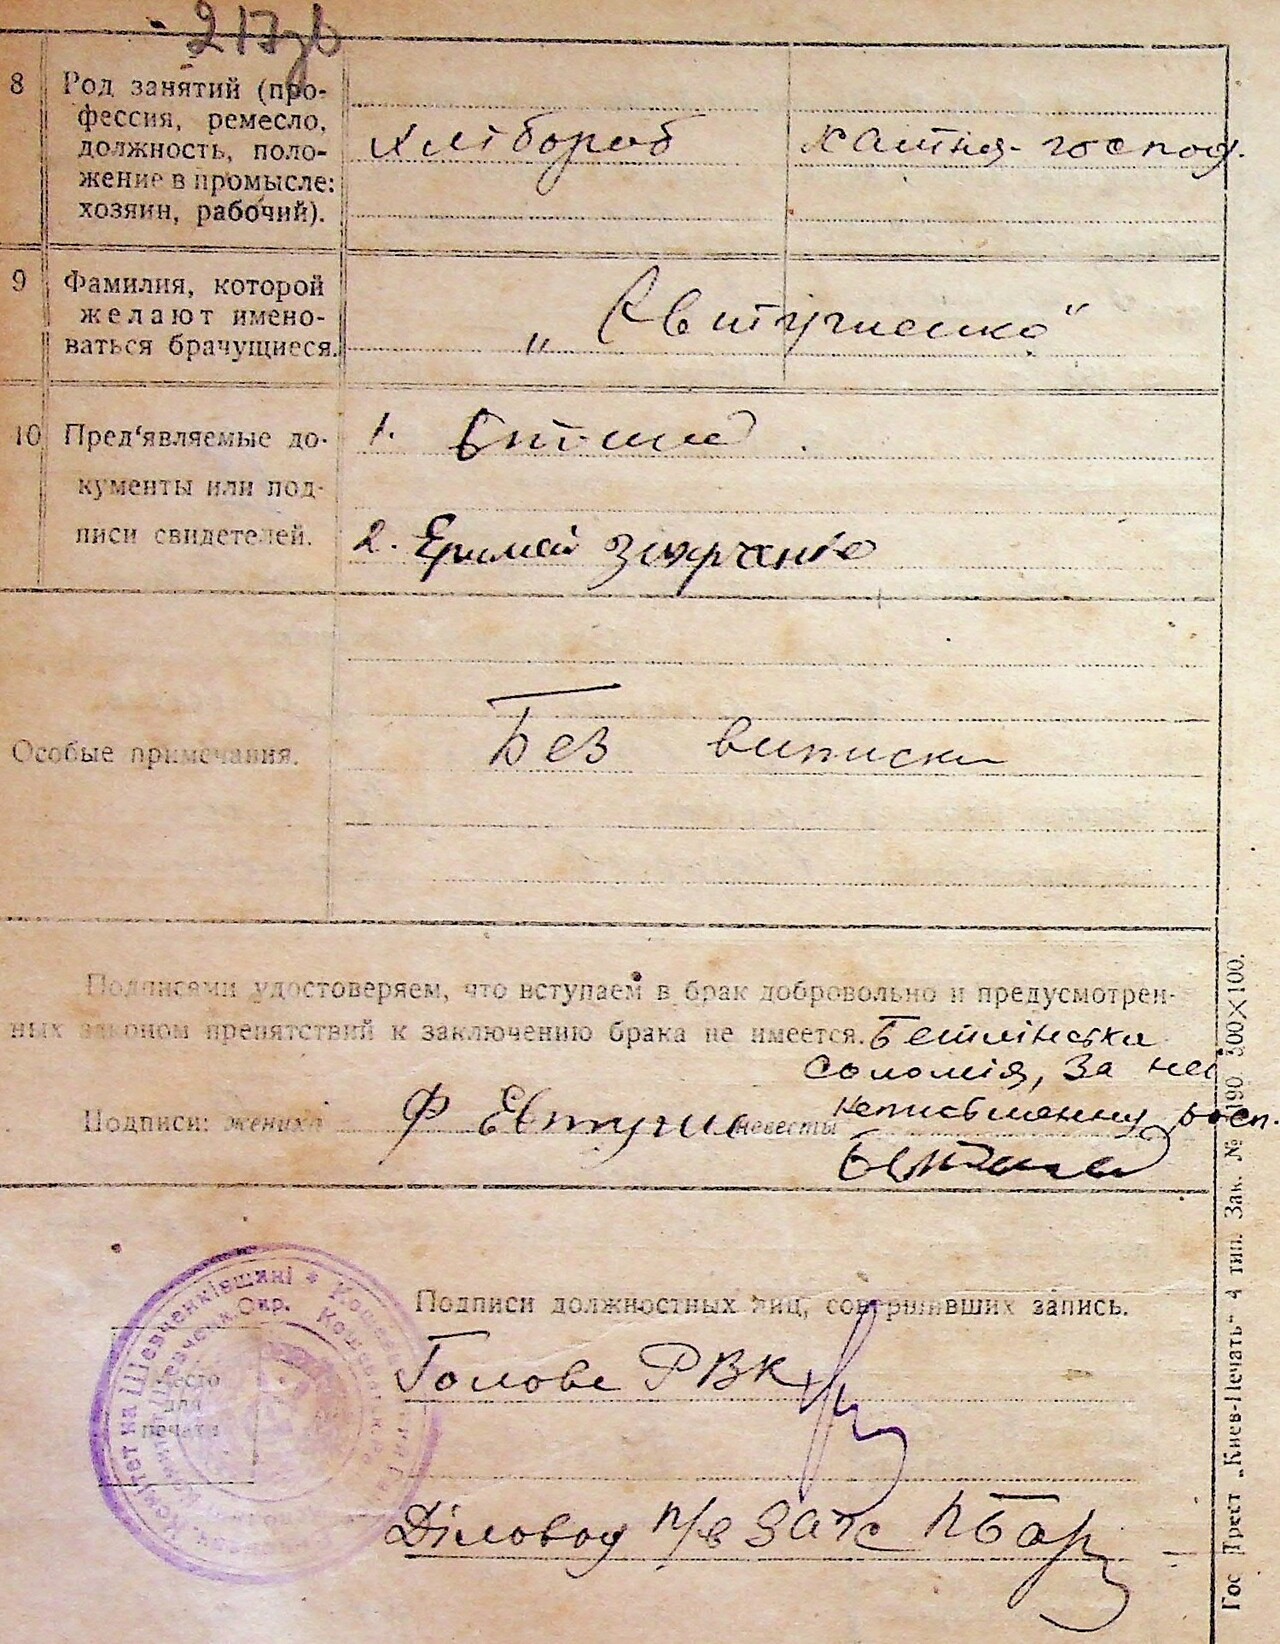 217зв
8 Род занятий (про-
фессия, ремесло,
должность, поло-
жение в промысле:
хозяин, рабочий).
Хлібороб
хатня-господ.
9 Фамилия, которой
желают имено-
ваться брачущиеся.
„Євтушенко"
10 Пред'являемые до-
кументы или под-
писи свидетелей.
1.
2.
Особые примечания.
Без виписки
Подписями удостоверяем, что вступаем в брак добровольно и предусмотрен-
ных законом препятствий к заключению брака не имеется.
Соломія, За неї
неписьменну росп.
Подписи: жениха Ф Євтуше невесты
Подписи должностных лиц, совершивших запись.
Место
для
печати
Голова РВК
Діловод п/в Загс
Гос Трест „Киев-Печать" 4 тип. Зак. № 190. 300×100.